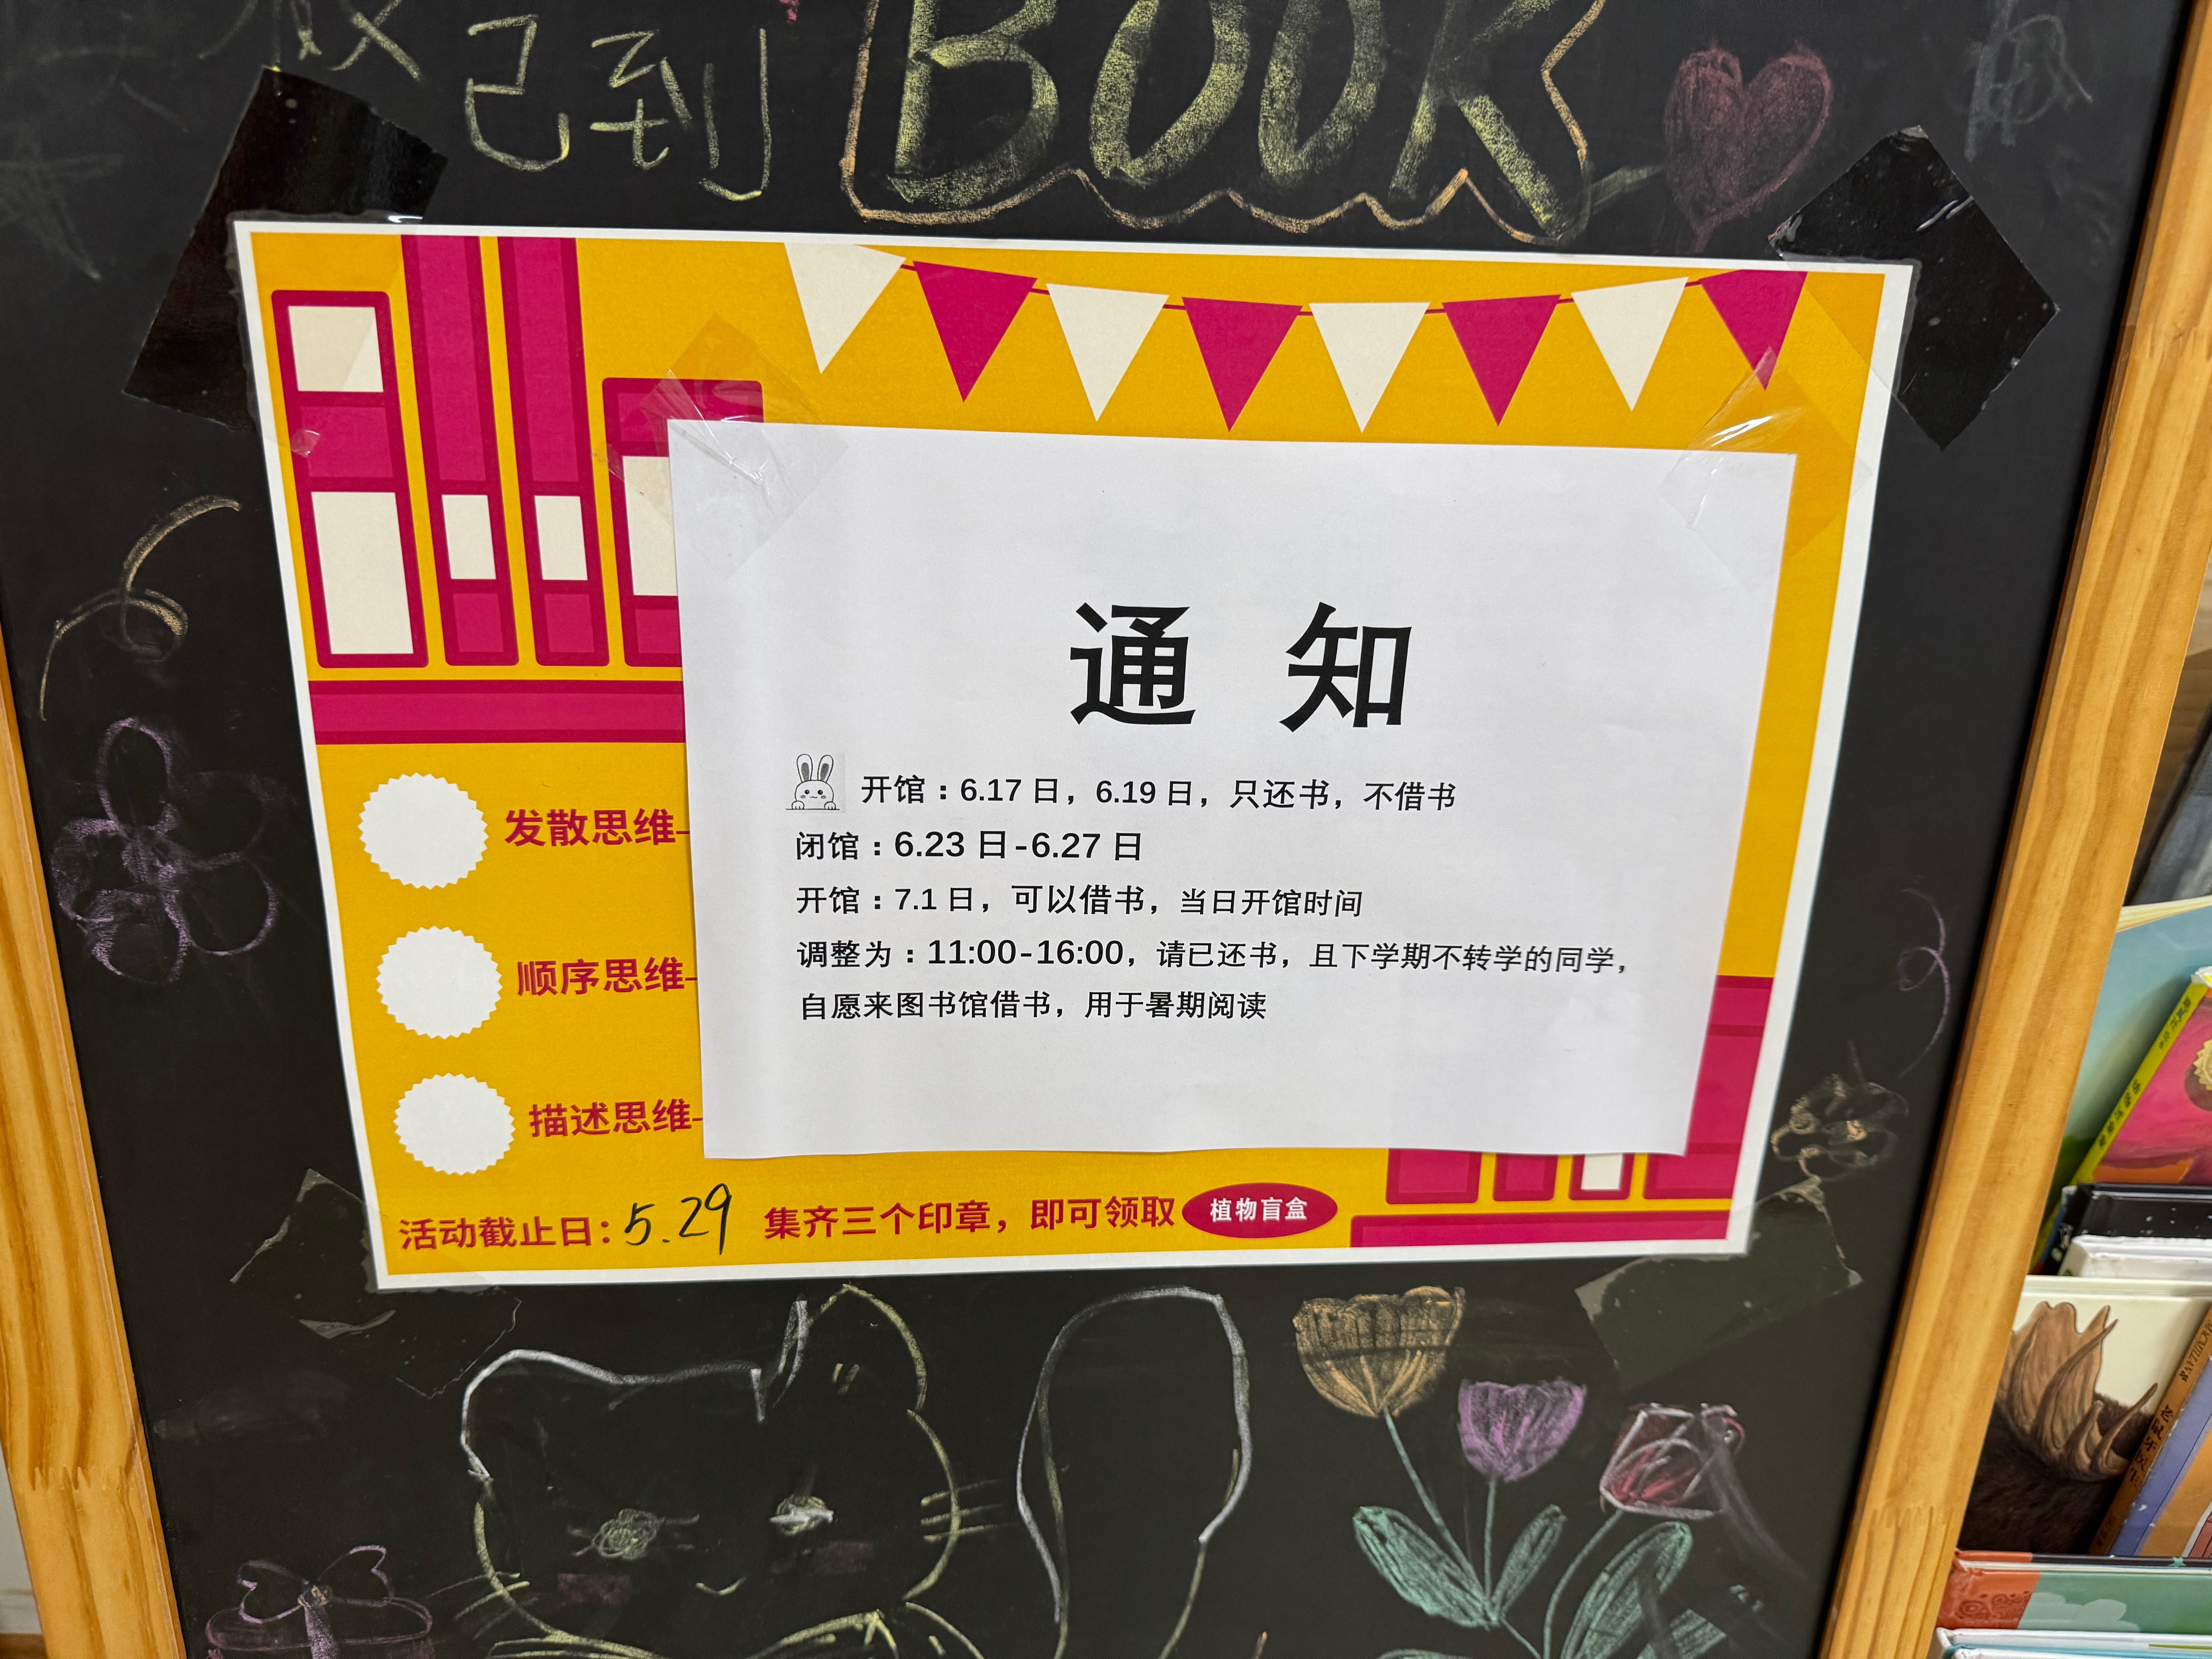 已到
BOOK
通知
开馆：6.17日，6.19日，只还书，不借书
闭馆：6.23日-6.27日
开馆：7.1日，可以借书，当日开馆时间
调整为：11:00-16:00，请已还书，且下学期不转学的同学，
自愿来图书馆借书，用于暑期阅读
发散思维-
顺序思维-
描述思维-
活动截止日：5.29 集齐三个印章，即可领取 植物盲盒